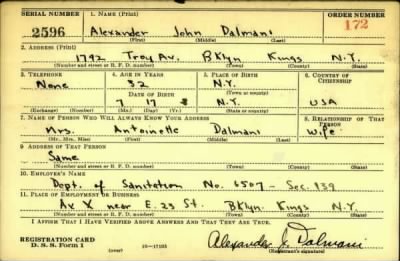 SERIAL NUMBER 1. NAME (Print) ORDER NUMBER
2596 Alexander John Dalmani 172
(First) (Middle) (Last)
2. ADDRESS (Print)
1742 Troy Av. Bklyn Kings N.Y.
(Number and street or R. F. D. number) (Town) (County) (State)
3. TELEPHONE 4. AGE IN YEARS 5. PLACE OF BIRTH 6. COUNTRY OF CITIZENSHIP
None 32 N.Y.
DATE OF BIRTH (Town or county)
7 17 8 N.Y. USA
(Exchange) (Number) (Mo.) (Day) (Yr.) (State or country)
7. NAME OF PERSON WHO WILL ALWAYS KNOW YOUR ADDRESS 8. RELATIONSHIP OF THAT PERSON
Mrs. Antoinette Dalmani Wife
(Mr., Mrs., Miss) (First) (Middle) (Last)
9. ADDRESS OF THAT PERSON
Same
(Number and street or R. F. D. number) (Town) (County) (State)
10. EMPLOYER'S NAME
Dept. of Sanitation No. 6507 - Sec. 139
11. PLACE OF EMPLOYMENT OR BUSINESS
Av X near E. 23 St. Bklyn. Kings N.Y.
(Number and street or R. F. D. number) (Town) (County) (State)
I AFFIRM THAT I HAVE VERIFIED ABOVE ANSWERS AND THAT THEY ARE TRUE.
REGISTRATION CARD
D. S. S. Form 1 (over) 16—17105 Alexander J. Dalmani
(Registrant's signature)